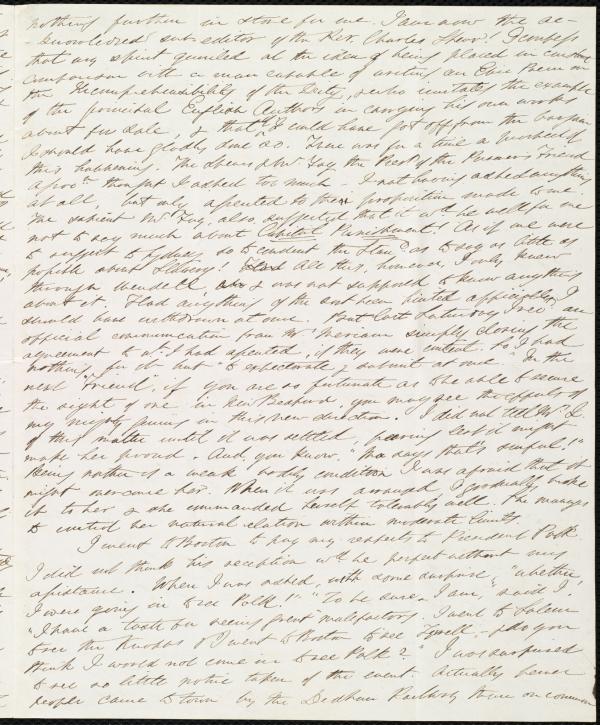 nothing further in store for me. I am now the ac-
-knowledged sub-editor of the Rev. Charles Spear! I confess
that my spirit quailed at the idea of being placed in
comparison with a man capable of writing an Epic Poem on
the Incomprehensibility of the Deity, & who imitates the example
of the principal English Authors in carrying his own works
about for sale, & that if I could have got off from the bargain
I should have gladly done so. There was for a time a prospect of
this happening. The Fay the Prest of the Prisoner's Friend
thought I asked too much — I not having asked anything
at all, but only assented to the proposition made to me.
The sapient Mr Fay, also, suggested that it wd be well for me
not to say much about Capital Punishment! As if one were
to suggest to Sydney so to conduct the Standd as to say as little as
possible about Slavery! All this, however, I only knew
through Wendell, & was not supposed to know anything
about it. Had anything of the sort been hinted officially, I
should have withdrawn at once. But last Saturday I recd an
official communication from Mr Meriam simply closing the
agreement to wh. I had assented, if they were content. So I had
nothing for it but "to expectorate & submit at once." In the
next "Friend", if you are so fortunate as to be able to secure
the sight of one in New Bedford, you may see the effects of
my mighty genius in this new direction. I did not tell Mrs Q.
of this matter until it was settled, fearing lest it might
make her proud. And, you know, "Ma says that's sinful!"
Being rather in a weak bodily condition I was afraid that it
might overcome her. When it was arranged I gradually broke
it to her & she commanded herself tolerably well. She manages
to control her natural elation within moderate limits.
I went to Boston to pay my respects to President Polk.
I did not think his reception wd be perfect without my
assistance. When I was asked, with some surprise, "whether
I were going in to see Polk!" "To be sure I am," said I
"I have a taste for seeing great malefactors. I went to Salem
to see the Knapps & I went to Boston to see Tirrell, — & do you
think I would not come in to see Polk?" I was surprised
to see so little notice taken of the event. Actually fewer
people came to town by the Dedham Railway than on common